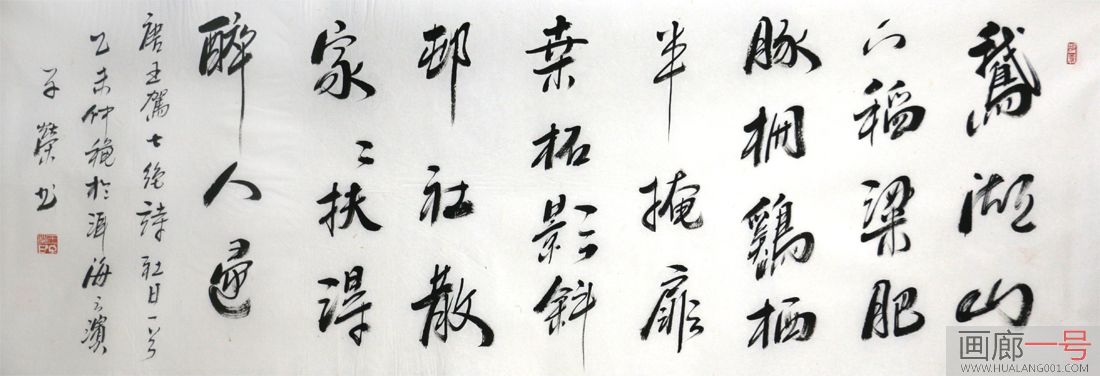 鵞湖山
下稻粱肥
豚栅鷄栖
半掩扉
桒柘影斜
邨社散
家〻扶得
醉人歸
唐王駕七绝詩社日一首
乙未仲穐於洱海之濱
学榮书
画廊一号
WWW.HUALANG001.COM